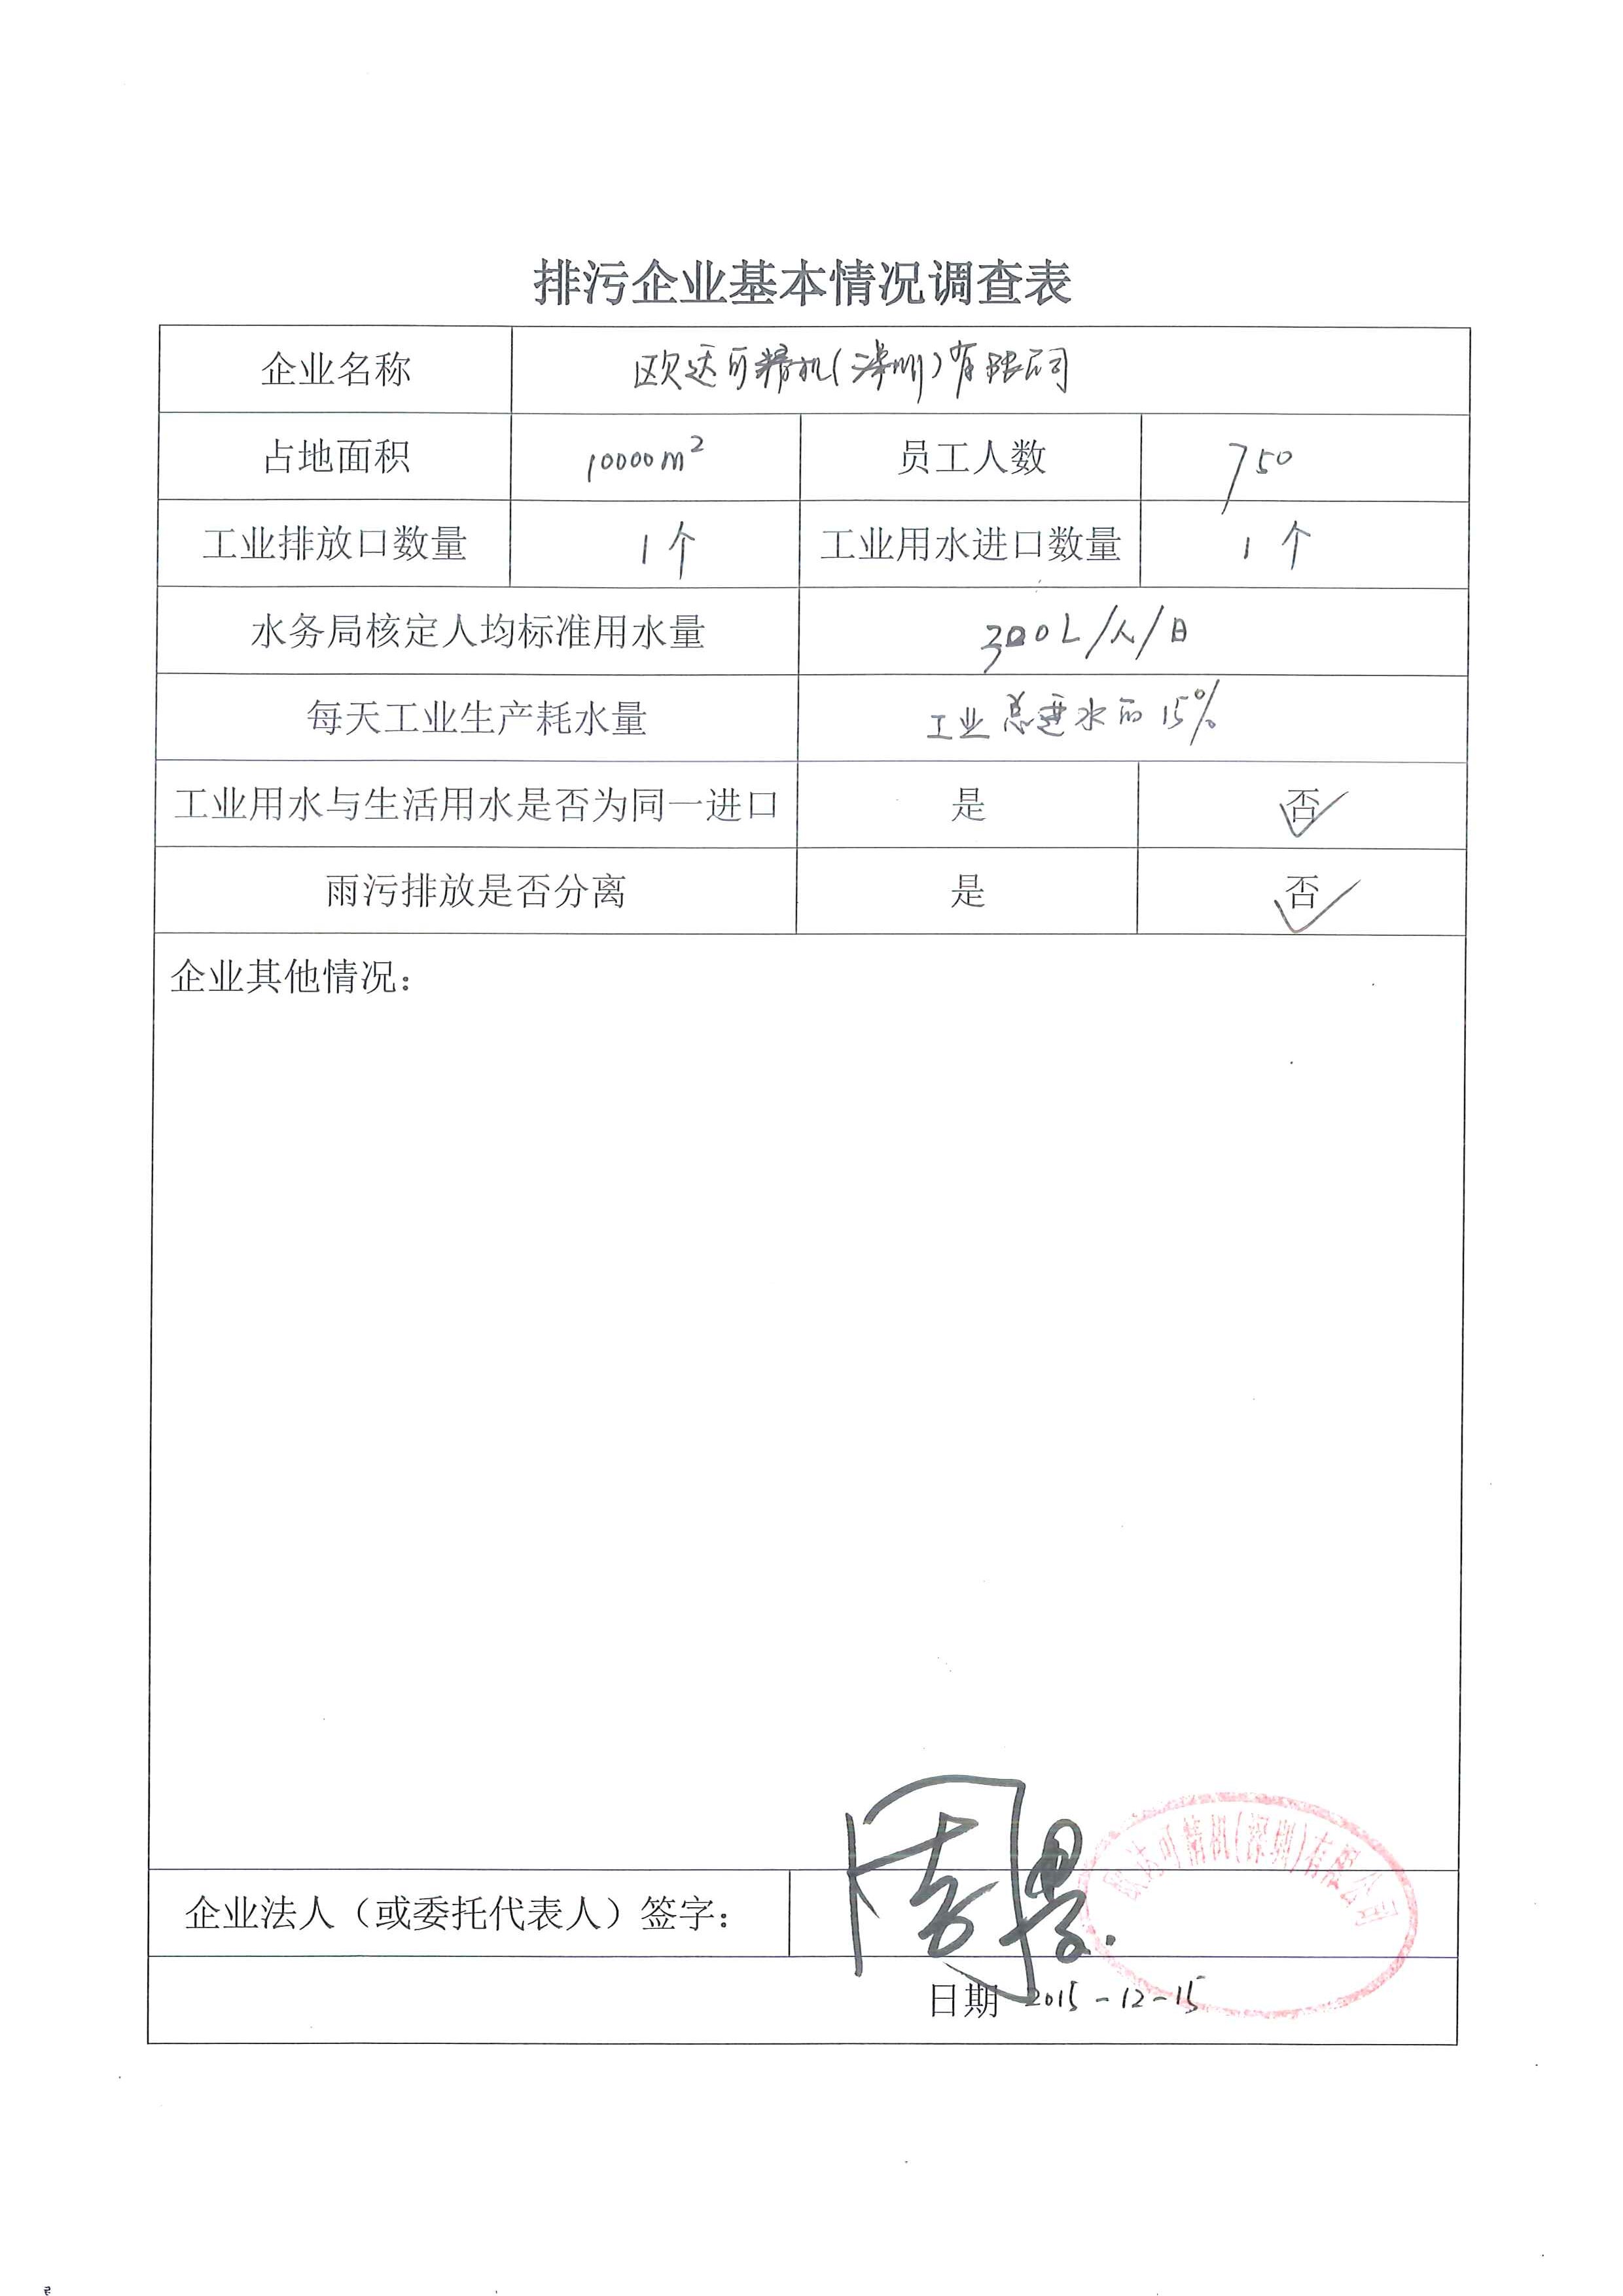 排污企业基本情况调查表
企业名称 欧达可精机(深圳)有限公司
占地面积 10000m² 员工人数 750
工业排放口数量 1个 工业用水进口数量 1个
水务局核定人均标准用水量 300L/人/日
每天工业生产耗水量 工业总进水的15%
工业用水与生活用水是否为同一进口 是 否✓
雨污排放是否分离 是 否✓
企业其他情况：
欧达可精机(深圳)有限公司
企业法人（或委托代表人）签字：
日期 2015-12-15